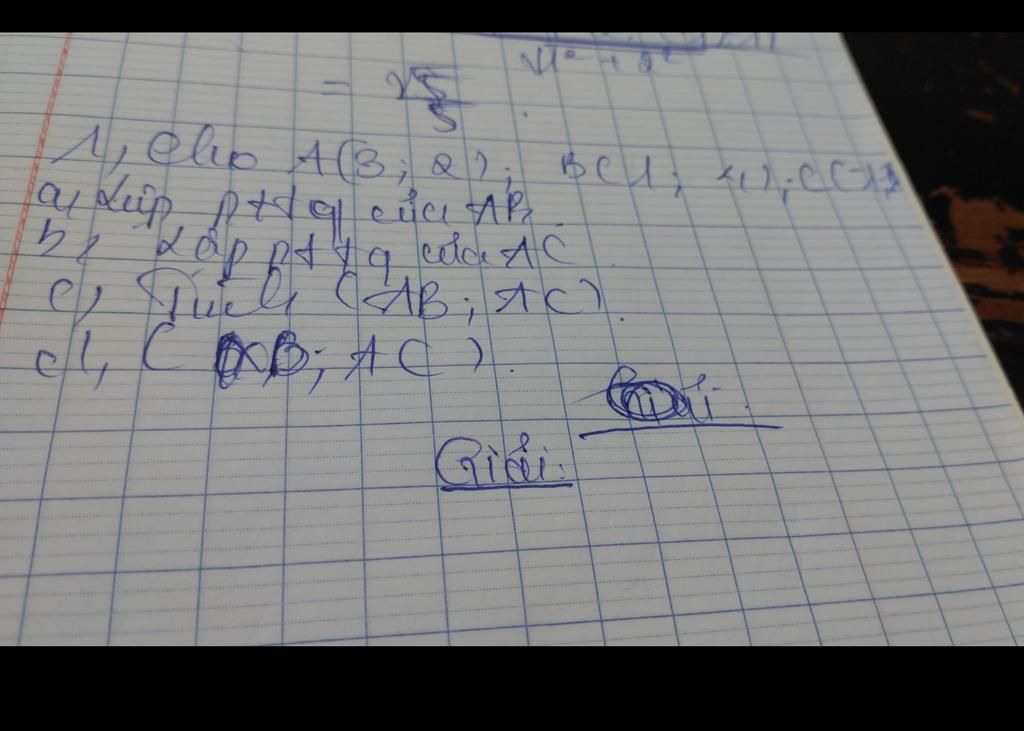 √1² + 2²
= √5/5 .
1, Cho A(3; 2); B(1;
a, Lập pttq của AB
b, Lập pttq của AC
c, Tính (AB; AC).
d, ( B; AC).
Giải: